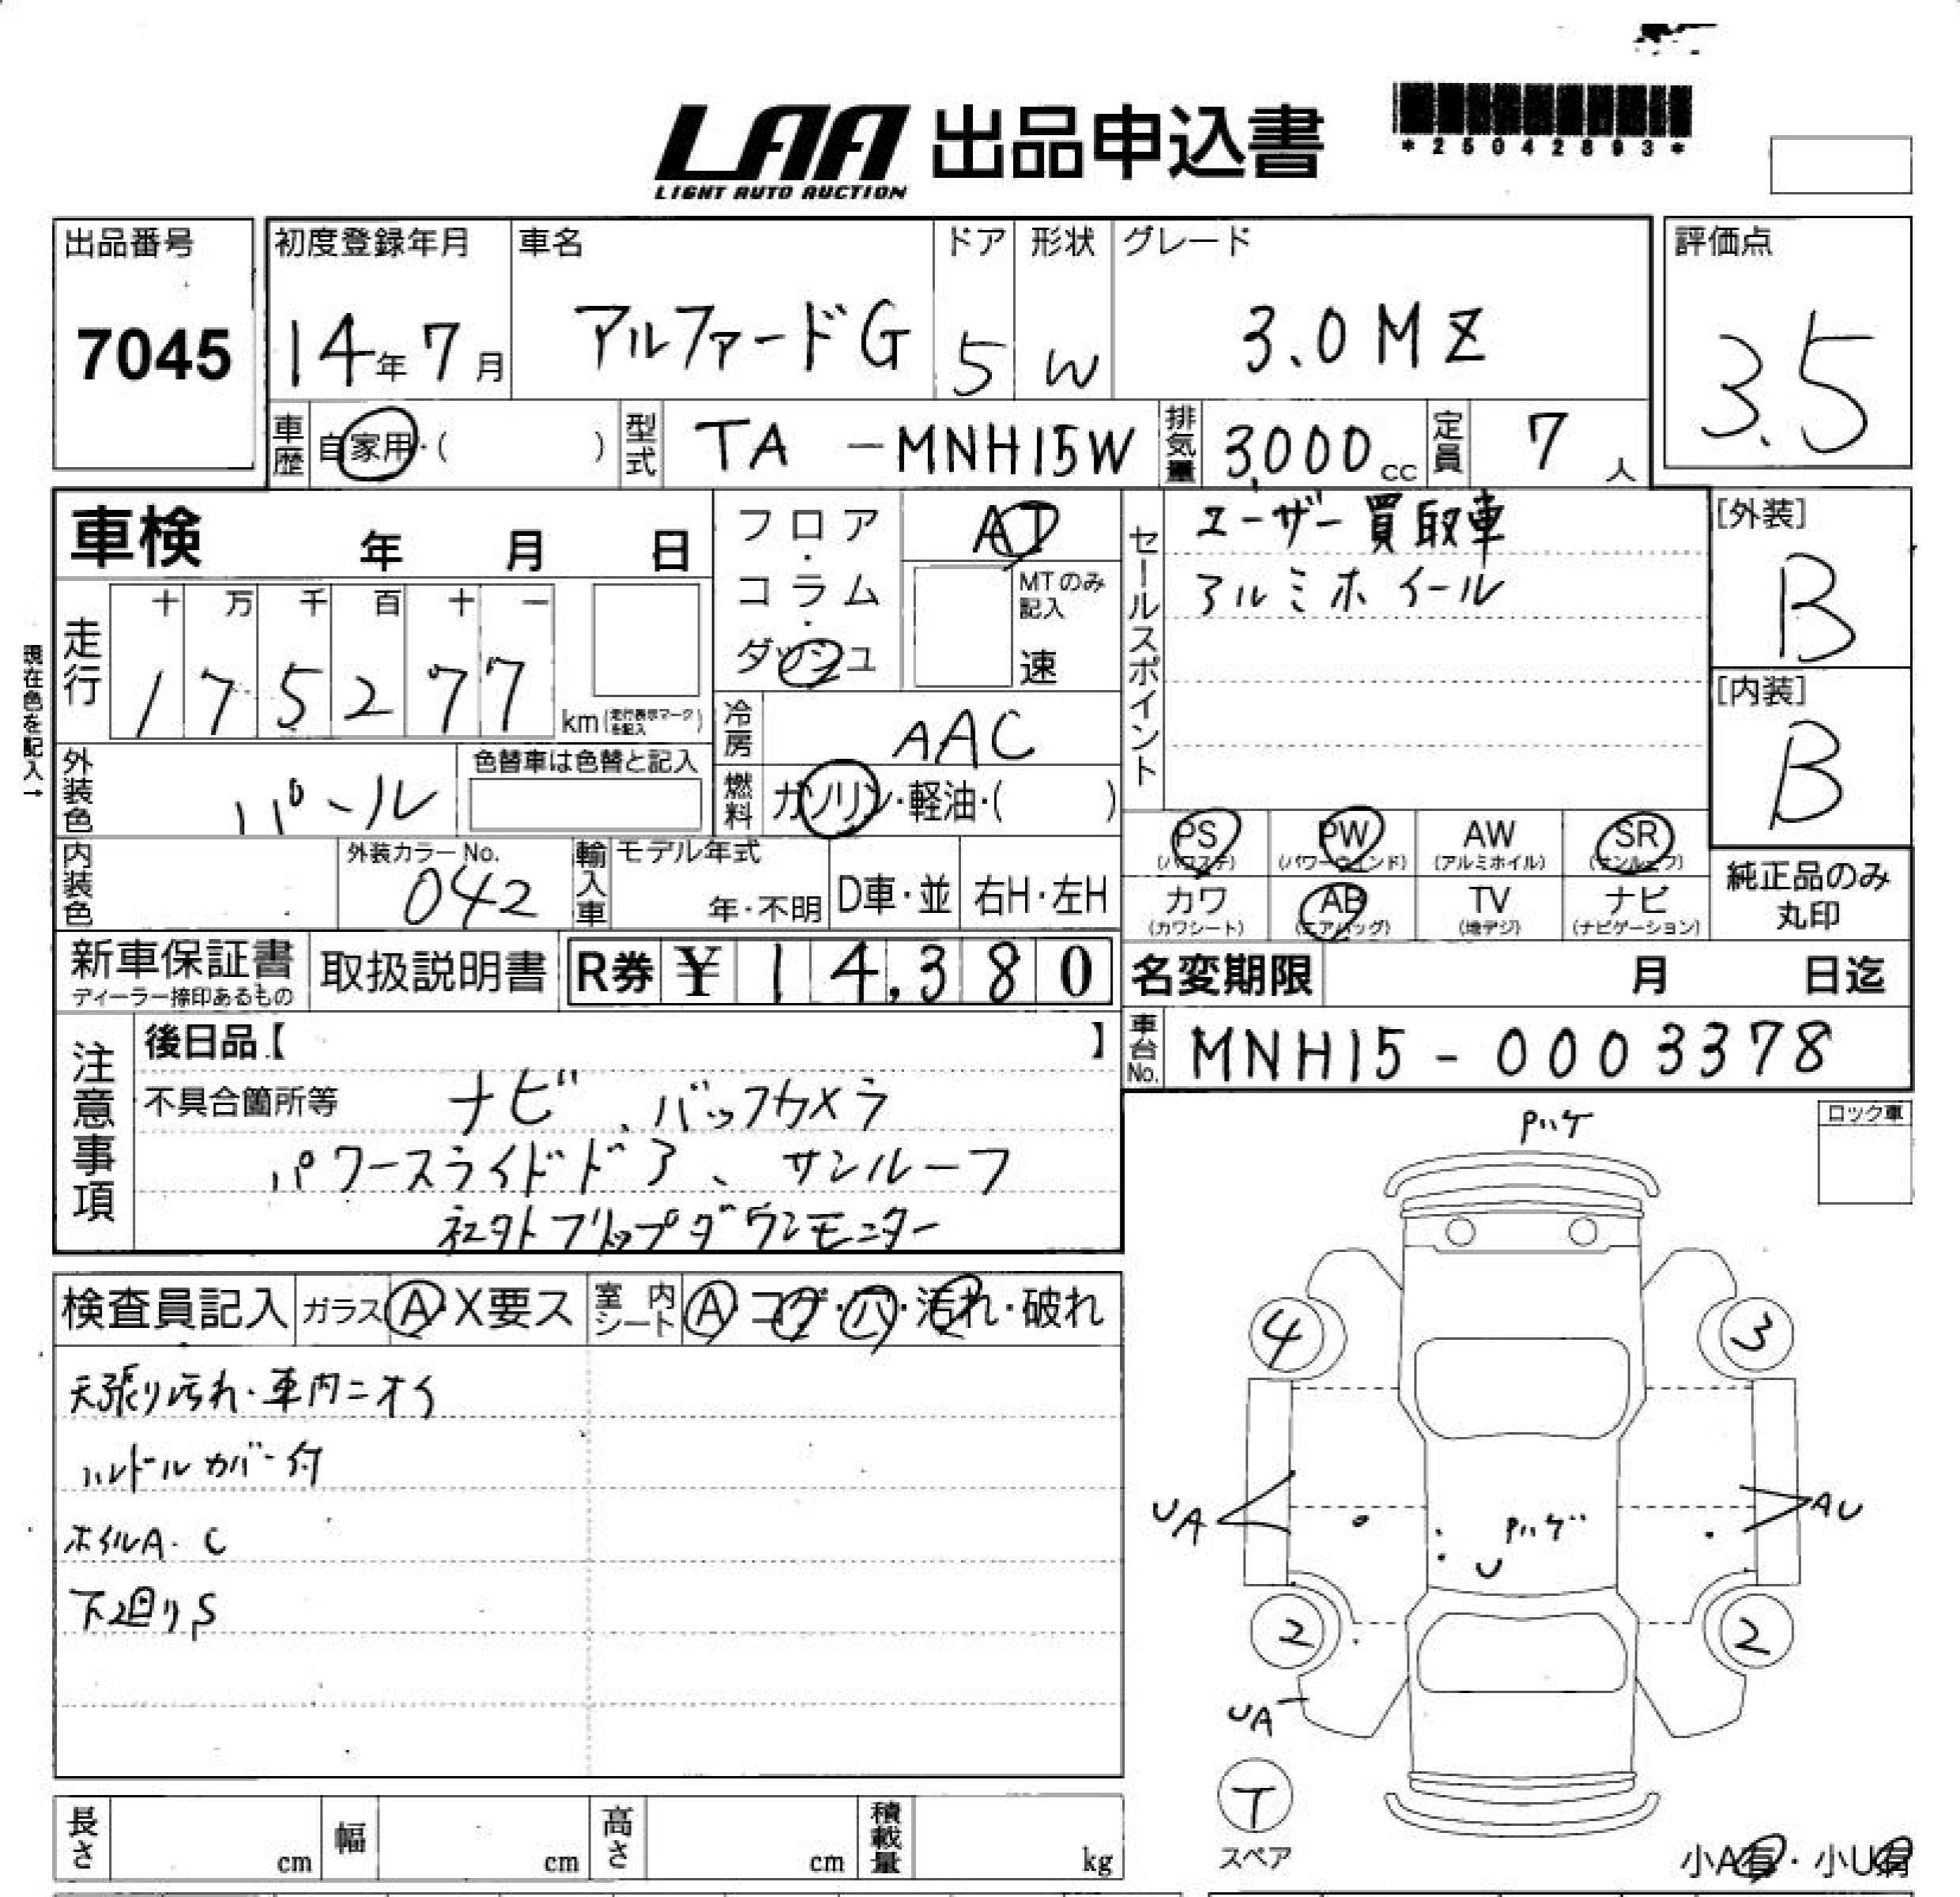 LAA 出品申込書
LIGHT AUTO AUCTION
*25042893*
出品番号
7045
初度登録年月
14年7月
車名
アルファードG
ドア
5
形状
W
グレード
3.0MZ
評価点
3.5
車歴
自家用・( )
型式
TA -MNH15W
排気量
3,000cc
定員
7人
車検 年 月 日
フロア・コラム・ダッシュ
AT
MTのみ記入
速
セールスポイント
ユーザー買取車
アルミホイール
[外装]
B
[内装]
B
現在色を記入→
走行
十 万 千 百 十 一
1 7 5 2 7 7
km(走行表示マークを記入)
冷房
AAC
外装色
パール
色替車は色替と記入
燃料
ガソリン・軽油・( )
内装色
外装カラーNo.
042
輸入車
モデル年式
年・不明
D車・並
右H・左H
PS
(パワステ)
PW
(パワーウインド)
AW
(アルミホイル)
SR
(サンルーフ)
カワ
(カワシート)
AB
(エアバッグ)
TV
(地デジ)
ナビ
(ナビゲーション)
純正品のみ
丸印
新車保証書
ディーラー捺印あるもの
取扱説明書
R券 ¥14,380
名変期限 月 日迄
車台No.
MNH15-0003378
注意事項
後日品【 】
不具合箇所等
ナビ、バックカメラ
パワースライドドア、サンルーフ
社外フリップダウンモニター
ロック車
Pハゲ
検査員記入
ガラス
A・X要ス
室内シート
A・コゲ・穴・汚れ・破れ
天張り汚れ・車内ニオイ
ハンドルカバー付
ホイルA・C
下廻りS
4
3
UA
AU
Pハゲ
U
2
2
UA
T
スペア
小A有・小U有
長さ cm
幅 cm
高さ cm
積載量 kg